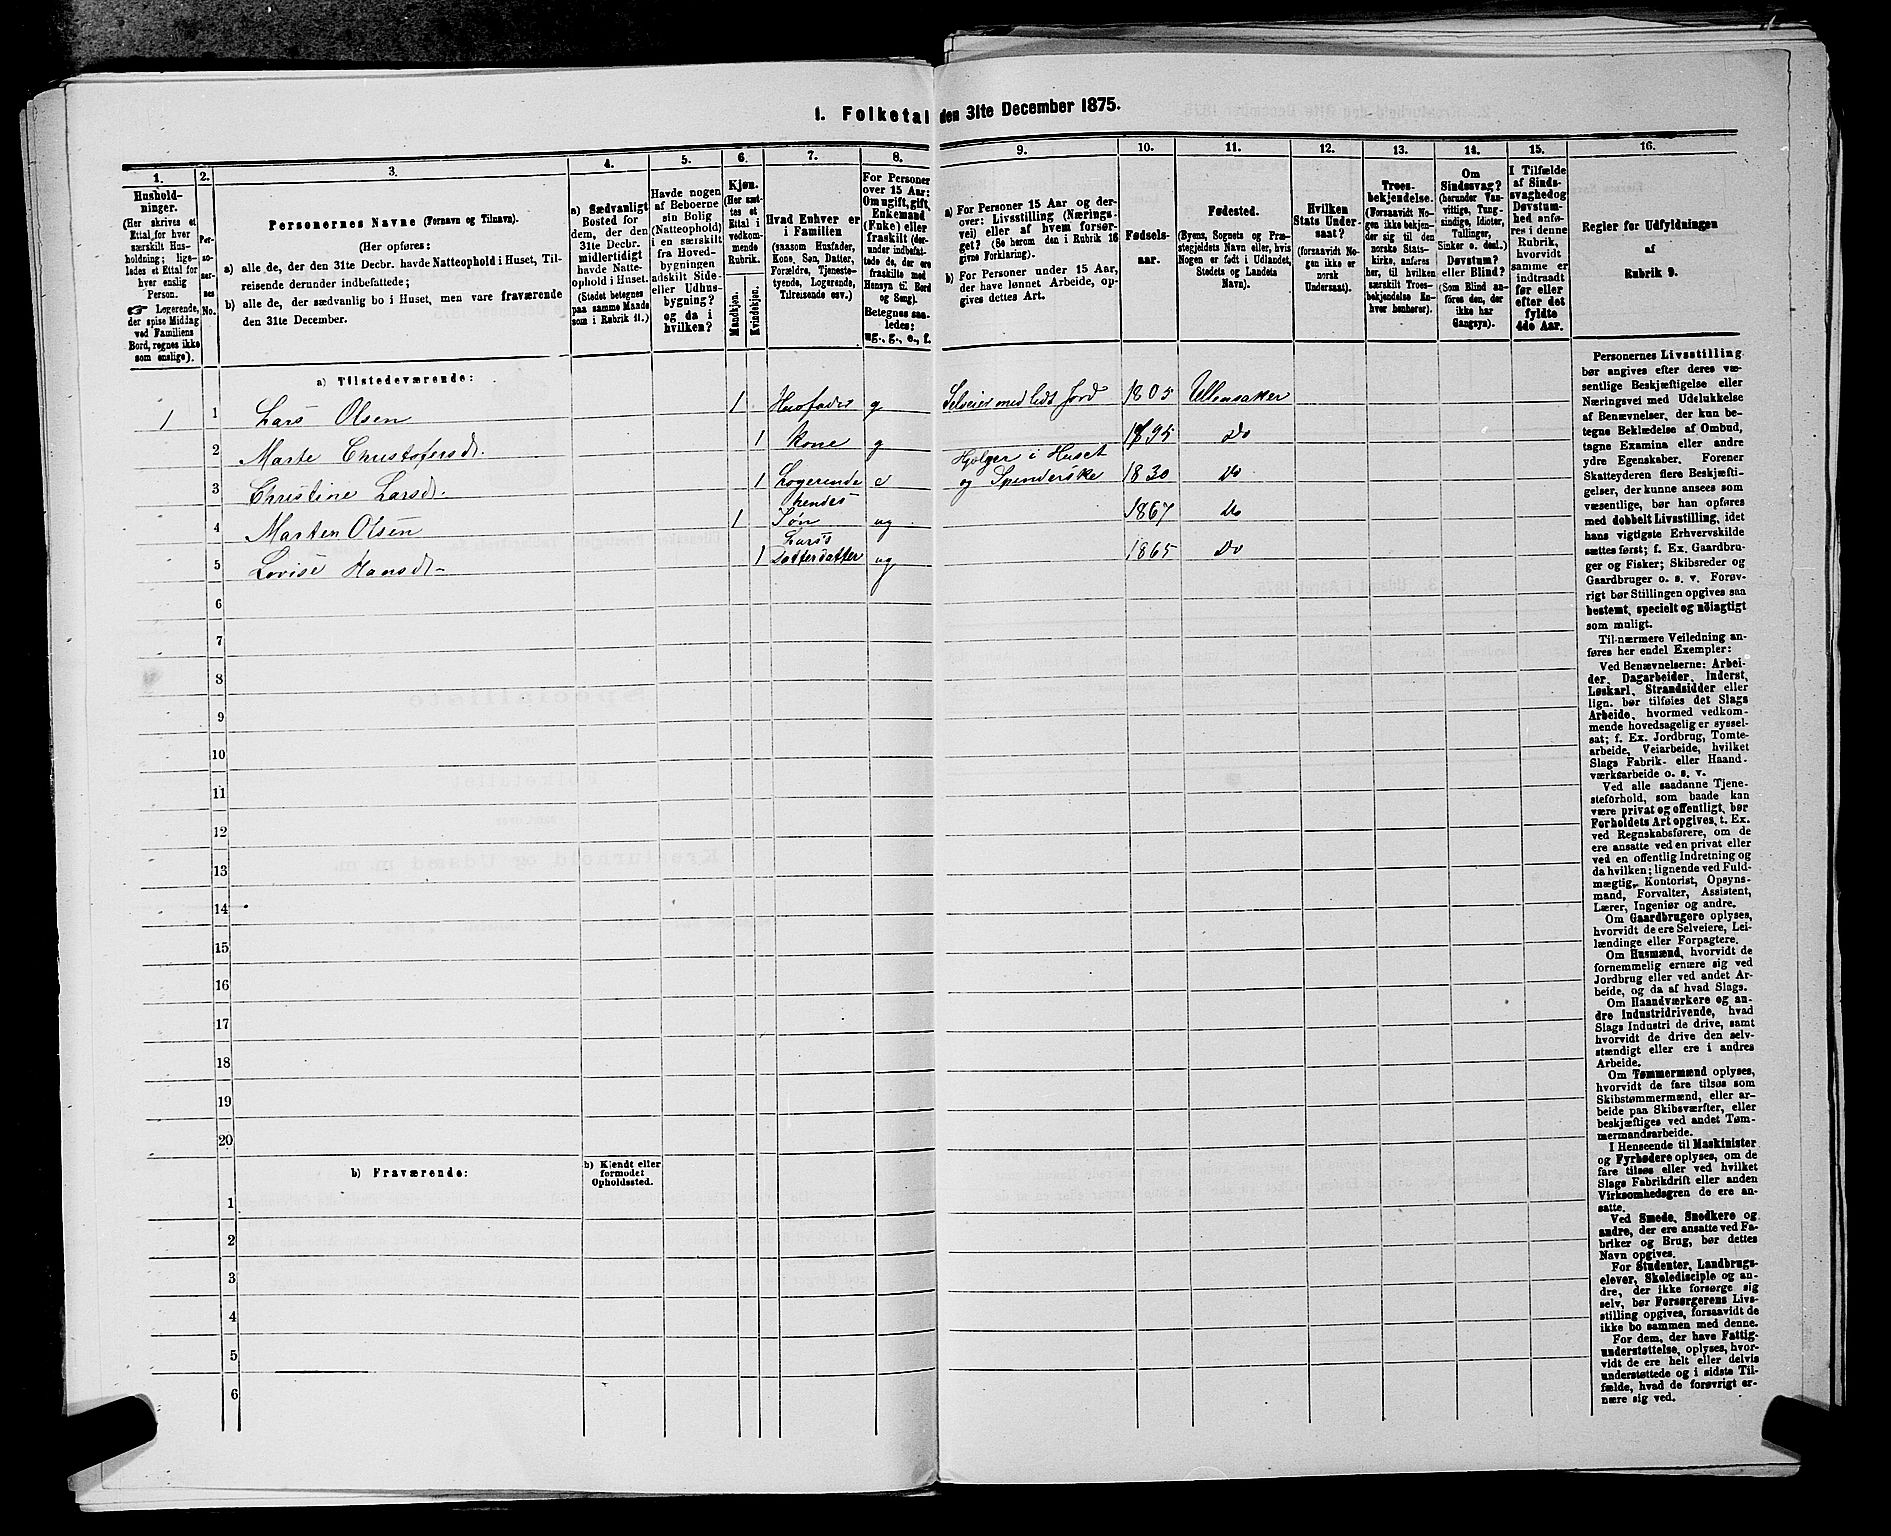 1. Folketal den 31te December 1875.
1. 2. 3. 4. 5. 6. 7. 8. 9. 10. 11. 12. 13. 14. 15. 16.
Hushold-
ninger.
(Her skrives et
Ettal for hver
særskilt Hus-
holdning; lige-
ledes et Ettal for
hver enslig
Person.
☞ Logerende,
der spise Middag
ved Familiens
Bord, regnes ikke
som enslige).
Per-
so-
ner-
nes
No.
Personernes Navne (Fornavn og Tilnavn).
(Her opføres:
a) alle de, der den 31te Decbr. havde Natteophold i Huset, Til-
reisende derunder indbefattede;
b) alle de, der sædvanlig bo i Huset, men vare fraværende
den 31te December.
a) Sædvanligt
Bosted for
dem, der den
31te Decbr.
midlertidigt
havde Natte-
ophold i Huset.
(Stedet betegnes
paa samme Maade
som i Rubrik 11.)
Havde nogen
af Beboerne
sin Bolig
(Natteophold)
i en særskilt
fra Hoved-
bygningen
adskilt Side-
eller Udhus-
bygning?
og da i
hvilken?
Kjøn.
(Her sæt-
tes et
Ettal i
vedkom-
mende
Rubrik.
Mandkjøn.
Kvindekjøn.
Hvad Enhver er
i Familien
(saasom Husfader,
Kone, Søn, Datter,
Forældre, Tjeneste-
tyende, Logerende,
Tilreisende osv.)
For Personer
over 15 Aar:
Om ugift, gift,
Enkemand
(Enke) eller
fraskilt (der-
under indbefat-
tede de, der ere
fraskilte med
Hensyn til Bord
og Seng).
Betegnes saa-
ledes:
ug., g., e., f.
a) For Personer 15 Aar og der-
over: Livsstilling (Nærings-
vei) eller af hvem forsør-
get? (Se herom den i Rubrik 16
givne Forklaring).
b) For Personer under 15 Aar,
der have lønnet Arbeide, op-
gives dettes Art.
Fødsels-
aar.
Fødested.
(Byens, Sognets og Præ-
stegjeldets Navn eller, hvis
Nogen er født i Udlandet,
Stedets og Landets
Navn).
Hvilken
Stats Under-
saat?
(forsaavidt No-
gen ikke er
norsk
Undersaat).
Troes-
bekjendelse.
(Forsaavidt No-
gen ikke bekjen-
der sig til den
norske Stats-
kirke, anføres
her, til hvilken
særskilt Troes-
bekjendelse En-
hver henhører).
Om
Sindssvag?
(herunder Van-
vittige, Tung-
sindige, Idioter,
Tullinger,
Sinker o. desl.)
Døvstum?
eller Blind?
(Som Blind an-
føres den, der
ikke har
Gangsyn).
I Tilfælde
af Sinds-
svaghed og
Døvstum-
hed anfø-
res i denne
Rubrik,
hvorvidt
samme er
indtraadt
før eller
efter det
fyldte
4de Aar.
Regler for Udfyldningen
af
Rubrik 9.
a) Tilstedeværende:
1 1 Lars Olsen 1 Husfader g Selveier med lidt Jord 1805 Ullensaker
2 Marte Christofersdt. 1 Kone g 1795 Do
3 Christine Larsdt. 1 Logerende e Hjelper i Huset
og Spinderske 1830 Do
4 Marten Olsen 1 hendes
Søn ug 1867 Do
5 Lovise Hansdt. 1 Lars's
Datterdatter ug 1865 Do
6
7
8
9
10
11
12
13
14
15
16
17
18
19
20
b) Fraværende:
b) Kjendt eller
formodet
Opholdssted.
1
2
3
4
5
6
Personernes Livsstilling
bør angives efter deres væ-
sentlige Beskjæftigelse eller
Næringsvei med Udelukkelse
af Benævnelser, der kun be-
tegne Beklædelse af Ombud,
tagne Examina eller andre
ydre Egenskaber. Forener
Skatteyderen flere Beskjæfti-
gelser, der kunne ansees som
væsentlige, bør han opføres
med dobbelt Livsstilling, idet
hans vigtigste Erhvervskilde
sættes først; f. Ex. Gaardbru-
ger og Fisker; Skibsreder og
Gaardbruger o. s. v. Forøv-
rigt bør Stillingen opgives saa
bestemt, specielt og nøiagtigt
som muligt.
Til nærmere Veiledning an-
føres her endel Exempler:
Ved Benævnelserne: Arbei-
der, Dagarbeider, Inderst,
Løskarl, Strandsidder eller
lign. bør tilføies det Slags
Arbeide, hvormed vedkom-
mende hovedsagelig er syssel-
sat; f. Ex. Jordbrug, Tomte-
arbeide, Veiarbeide, hvilket
Slags Fabrik- eller Haand-
værksarbeide o. s. v.
Ved alle saadanne Tjene-
steforhold, som baade kan
være privat og offentligt, bør
Forholdets Art opgives, t. Ex.
ved Regnskabsførere, om de
ere ansatte ved en privat eller
ved en offentlig Indretning og
da hvilken; lignende ved Fuld-
mægtig, Kontorist, Opsyns-
mand, Forvalter, Assistent,
Lærer, Ingeniør og andre.
Om Gaardbrugere oplyses,
hvorvidt de ere Selveiere, Lei-
lændinge eller Forpagtere.
Om Husmænd, hvorvidt de
fornemmelig ernære sig ved
Jordbrug eller ved andet Ar-
beide, og da af hvad Slags.
Om Haandværkere og an-
dre Industridrivende, hvad
Slags Industri de drive, samt
hvorvidt de drive den selv-
stændigt eller ere i andres
Arbeide.
Om Tømmermænd oplyses,
hvorvidt de fare tilsøs som
Skibstømmermænd, eller ar-
beide paa Skibsværfter, eller
beskjæftiges ved andet Tøm-
mermandsarbeide.
I Henseende til Maskinister
og Fyrbødere oplyses, om de
fare tilsøs eller ved hvilket
Slags Fabrikdrift eller anden
Virksomhedsgren de ere an-
satte.
Ved Smede, Snedkere og
andre, der ere ansatte ved Fa-
briker og Brug, bør dettes
Navn opgives.
For Studenter, Landbrugs-
elever, Skoledisciple og an-
dre, der ikke forsørge sig
selv, bør Forsørgerens Livs-
stilling opgives, forsaavidt de
ikke bo sammen med denne.
For dem, der have Fattig-
understøttelse, oplyses, hvor-
vidt de ere helt eller delvis
understøttede og i sidste Til-
fælde, hvad de forøvrigt er-
nære sig ved.